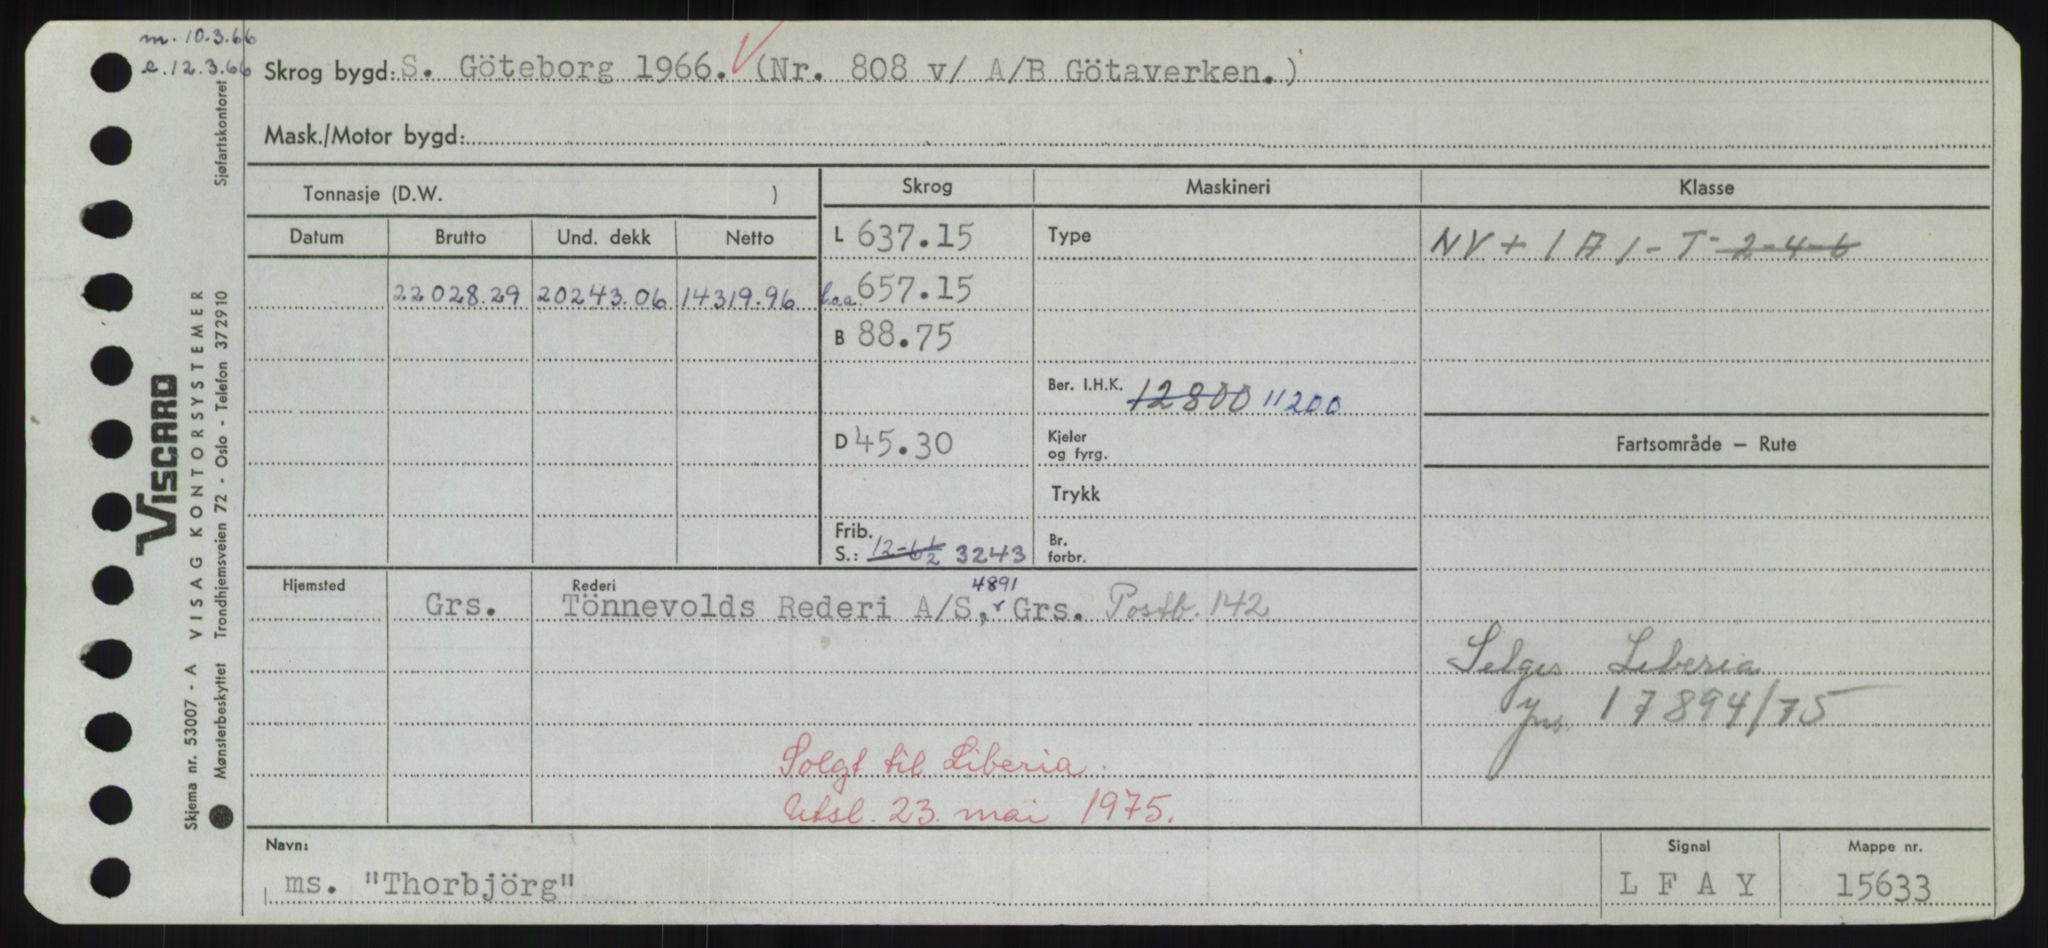 m. 10.3.66
e. 12.3.66
Skrog bygd: S. Göteborg 1966. (Nr. 808 v/ A/B Götaverken.)
Mask./Motor bygd:
Tonnasje (D.W. )
Skrog
Maskineri
Klasse
Datum
Brutto
Und. dekk
Netto
L 637.15
Type
NV + 1 A 1 - T - 2-4-6
22028.29 20243.06 14319.96
l.o.a. 657.15
B 88.75
Ber. I.H.K. 12800 11200
Fartsområde — Rute
D 45.30
Kjeler
og fyrg.
Trykk
Frib.
S.: 12-6½ 3243
Br.
forbr.
Hjemsted
Rederi
4891
Grs. Tönnevolds Rederi A/S, Grs. Postb. 142
Selges Liberia
17894/75
Solgt til Liberia.
Utsl. 23. mai 1975.
Navn:
ms. "Thorbjörg"
Signal
L F A Y
Mappe nr.
15633
VISCARD
VISAG KONTORSYSTEMER
Skjema nr. 53007 - A
Mønsterbeskyttet Trondhjemsveien 72 - Oslo - Telefon 372910
Sjøfartskontoret